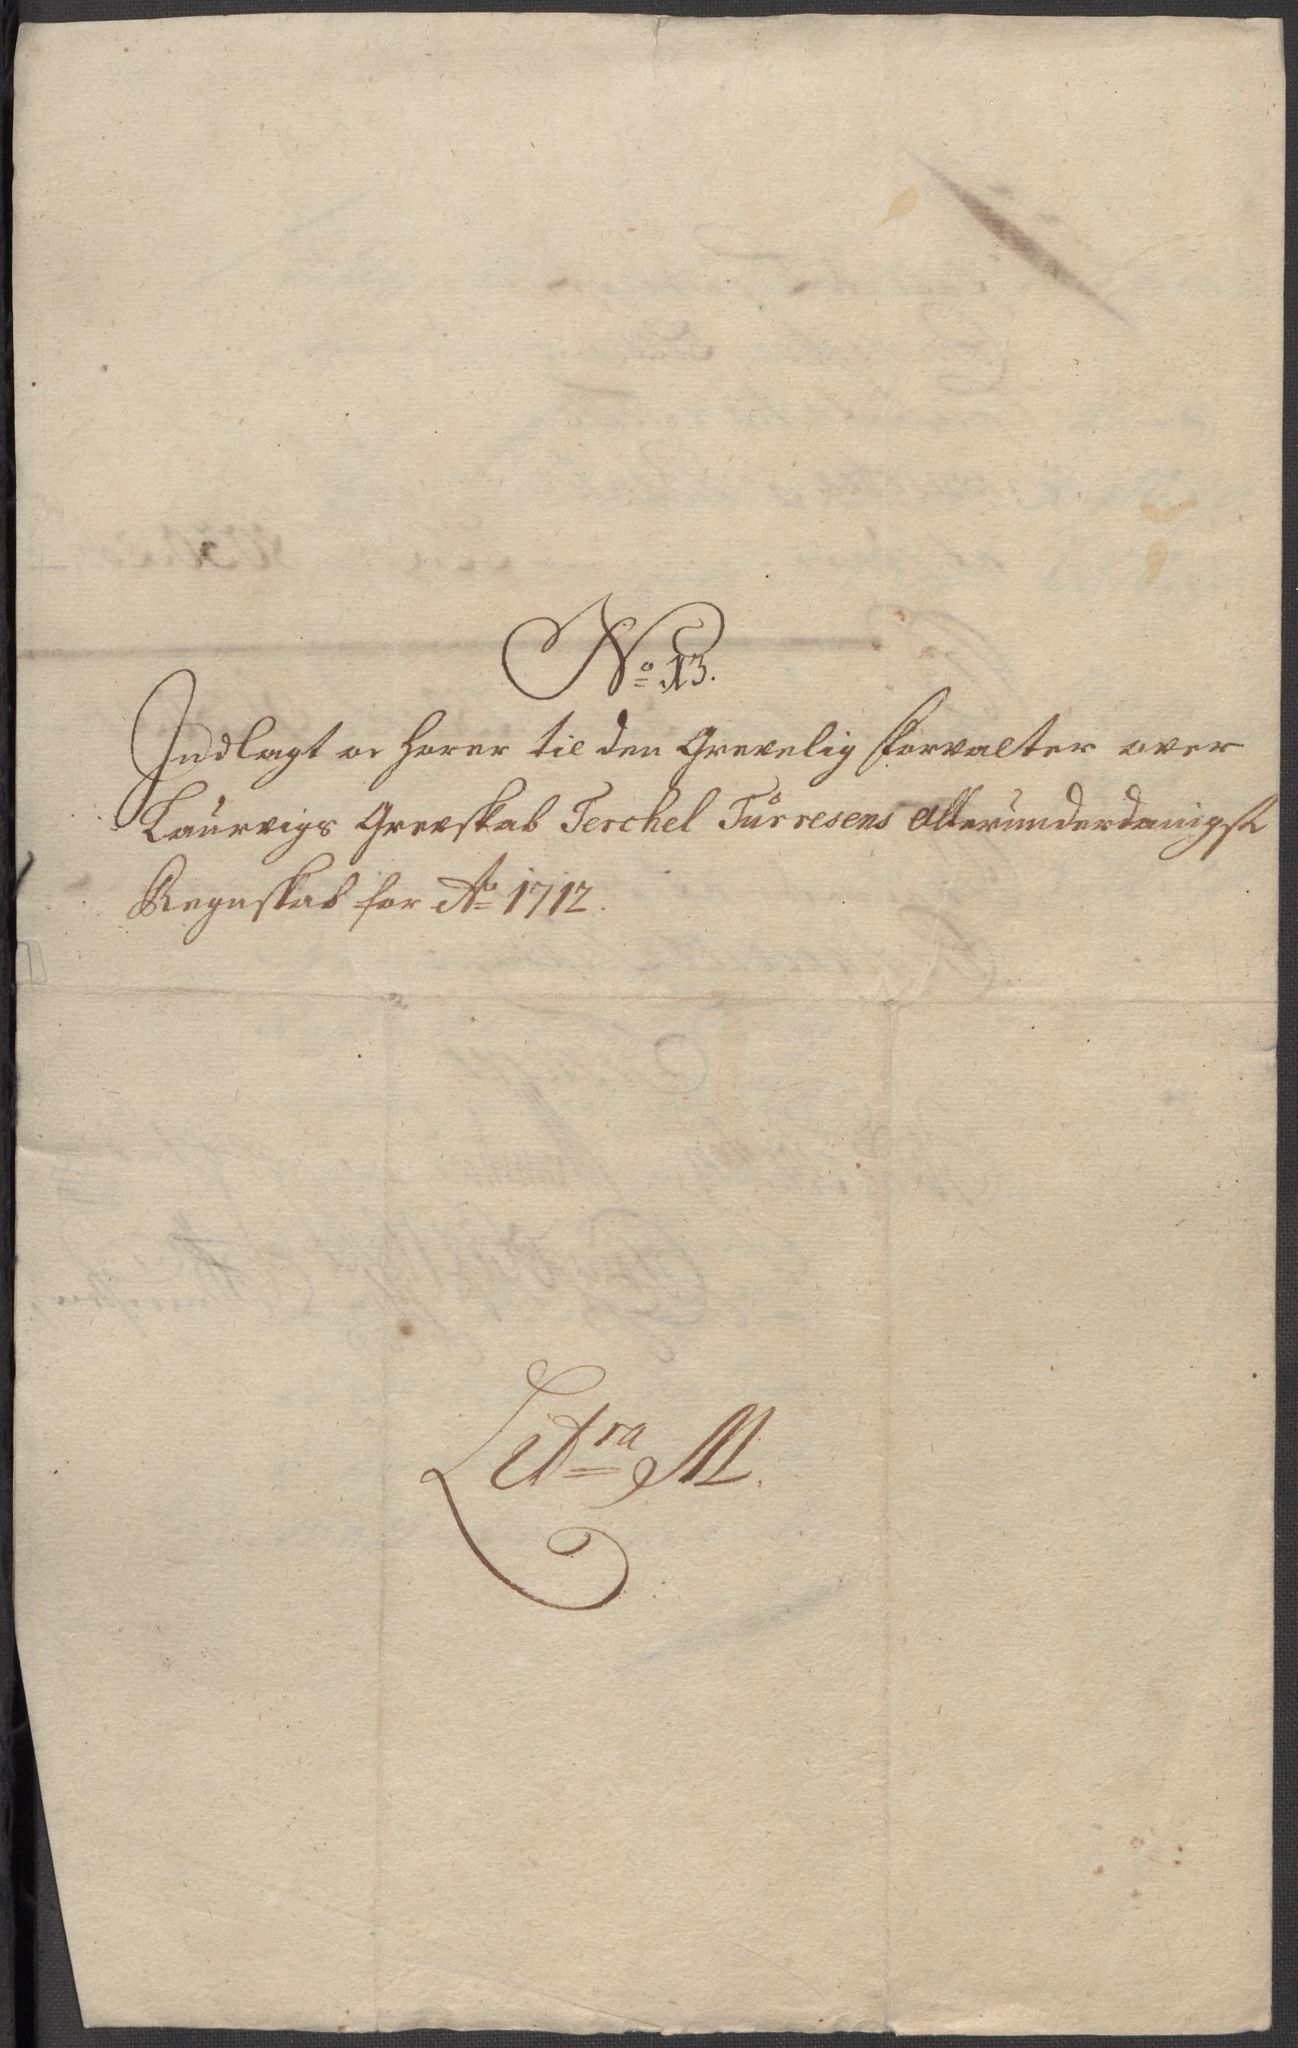 No 13.
Indlagt oc hører til den Grevelig forvalter over
Laurvigs Grevskab Terchel Tůrresens allerunderdanigste
Regnskab for Ao 1712.
Litra M.